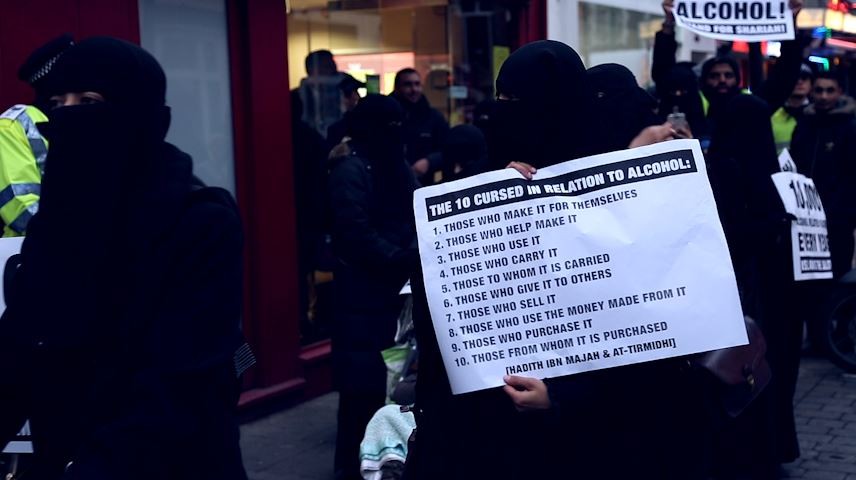 ALCOHOL!
STAND FOR SHARIAH!
THE 10 CURSED IN RELATION TO ALCOHOL:
1. THOSE WHO MAKE IT FOR THEMSELVES
2. THOSE WHO HELP MAKE IT
3. THOSE WHO USE IT
4. THOSE WHO CARRY IT
5. THOSE TO WHOM IT IS CARRIED
6. THOSE WHO GIVE IT TO OTHERS
7. THOSE WHO SELL IT
8. THOSE WHO USE THE MONEY MADE FROM IT
9. THOSE WHO PURCHASE IT
10. THOSE FROM WHOM IT IS PURCHASED
[HADITH IBN MAJAH & AT-TIRMIDHI]
EVERY YEAR